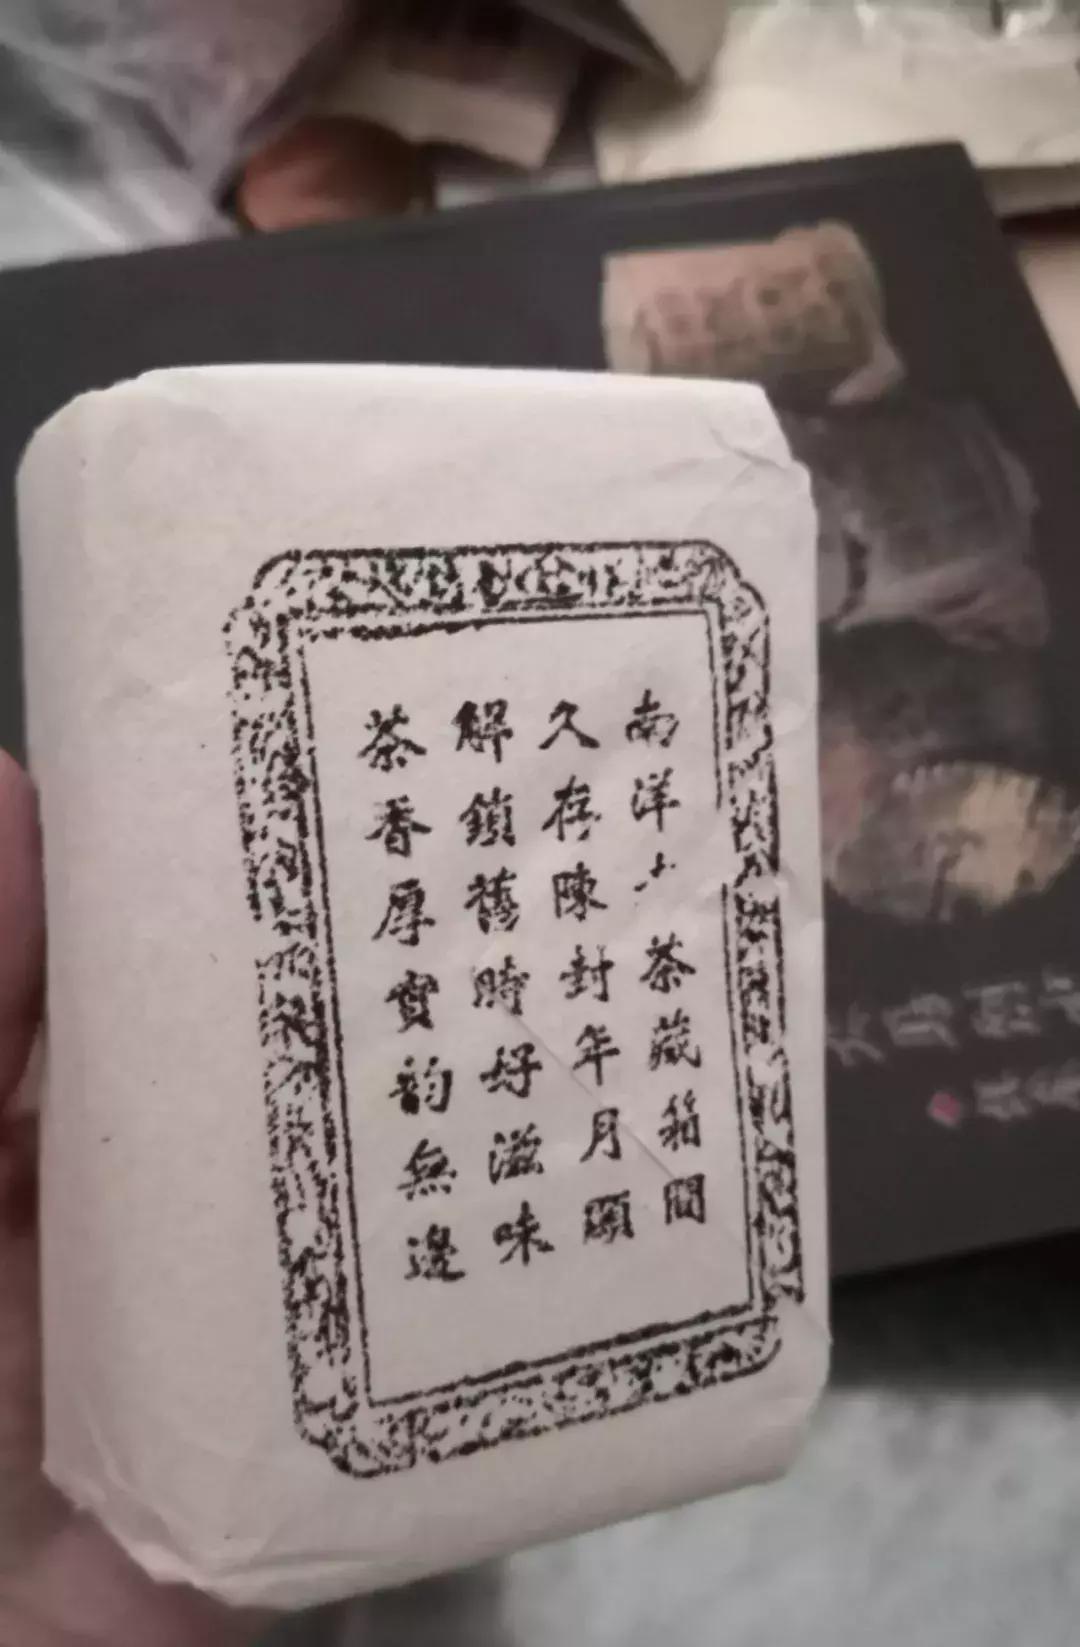 南洋六茶藏箱間
久存陳封年月顯
解鎖舊時好滋味
茶香厚實韵無邊